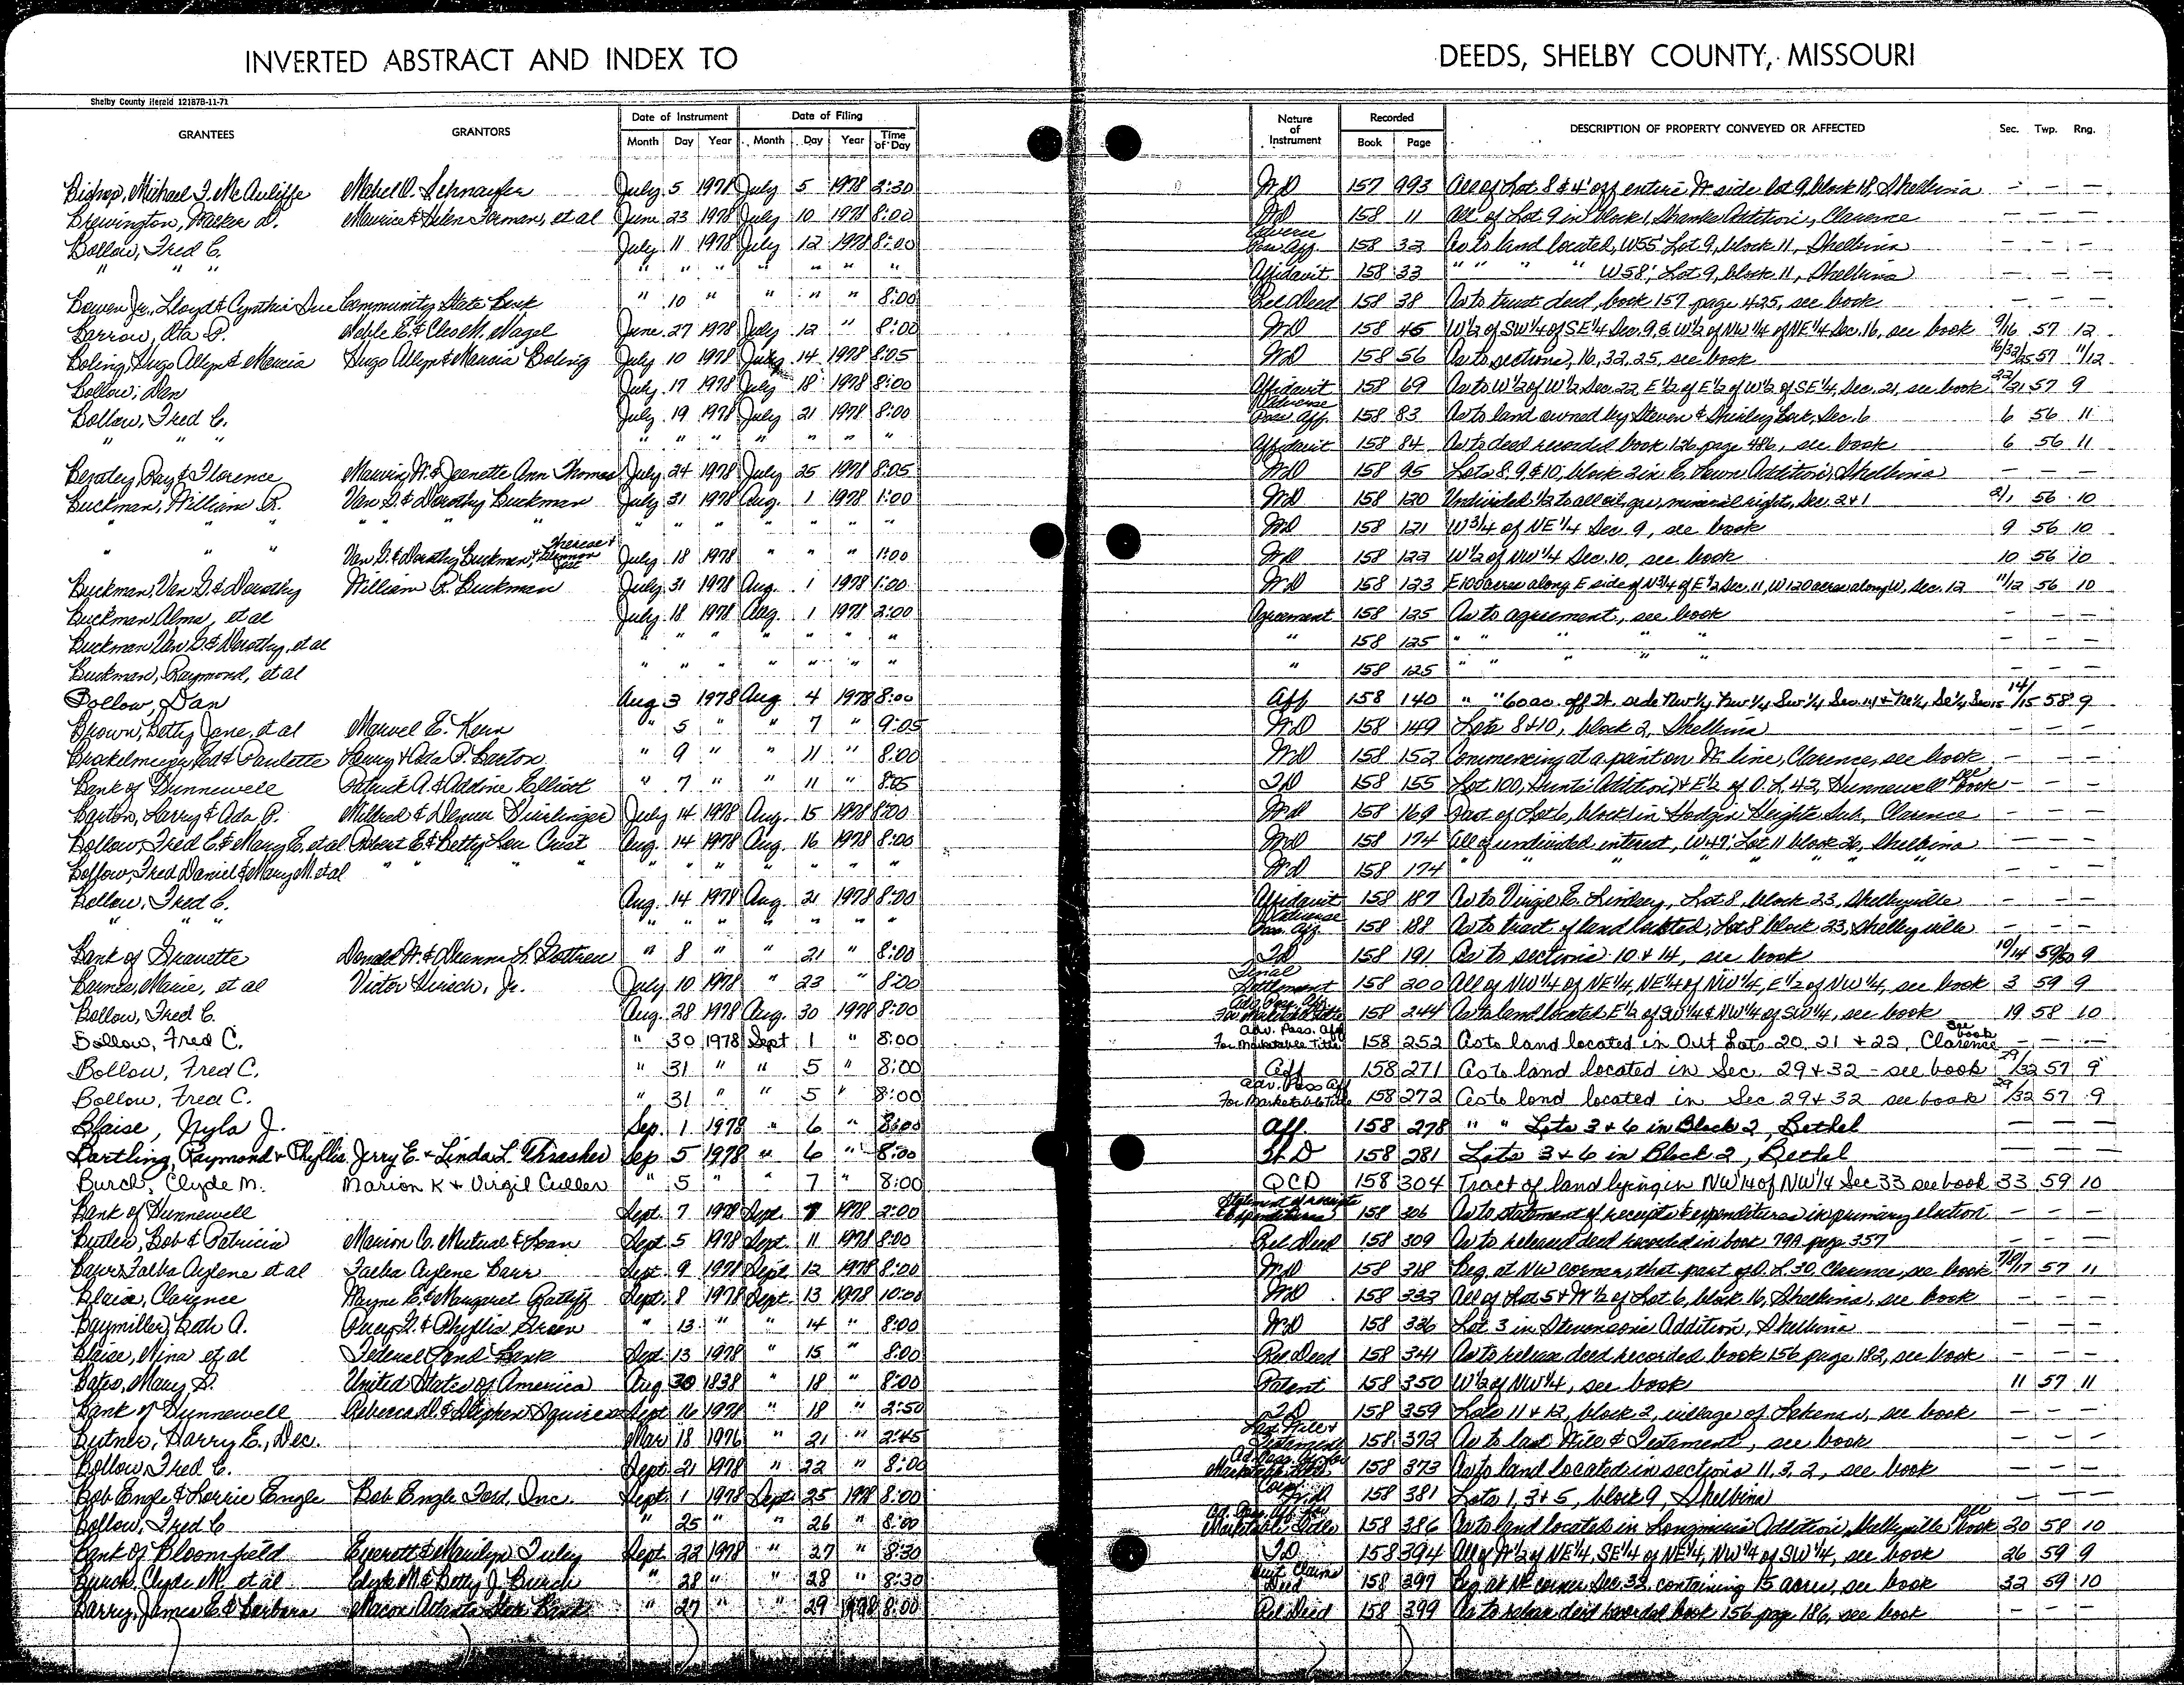 INVERTED ABSTRACT AND INDEX TO DEEDS, SHELBY COUNTY, MISSOURI
Shelby County Herald 12187B-11-71
GRANTEES GRANTORS Date of Instrument Date of Filing Nature of Instrument Recorded DESCRIPTION OF PROPERTY CONVEYED OR AFFECTED Sec. Twp. Rng.
Month Day Year Month Day Year Time of Day Book Page
Bishop, Michael J. McAuliffe Mabel O. Schnaufer July 5 1978 July 5 1978 2:30 WD 157 993 All of Lot 8 & 4' off entire W. side lot 9, block 18, Shelbina — — —
Brewington, Parker D. Maurice & Helen Forman, et al June 23 1978 July 10 1978 8:00 WD 158 11 All of Lot 9 in block 1, Shanks Addition, Clarence — — —
Bollow, Fred C. July 11 1978 July 12 1978 8:00 Adverse Poss. Aff. 158 32 As to land located, W55' Lot 9, block 11, Shelbina — — —
" " " " " " " " " " Affidavit 158 33 " " " " W58', Lot 9, block 11, Shelbina — — —
Bowen Jr., Lloyd & Cynthia Sue Community State Bank " 10 " " " " 8:00 Rel Deed 158 38 As to trust deed, book 157 page 425, see book — — —
Barrow, Ota P. Noble E. & Cleo M. Nagel June 27 1978 July 12 " 8:00 WD 158 45 W1/2 of SW1/4 of SE1/4 Sec. 9, & W1/2 of NW1/4 of NE1/4 Sec. 16, see book 9/16 57 12
Boling, Hugo Allyn & Marcia Hugo Allyn & Marcia Boling July 10 1978 July 14 1978 8:05 WD 158 56 As to sections, 16, 32, 25, see book 16/32/25 57 11/12
Bollow, Dan July 17 1978 July 18 1978 8:00 Affidavit 158 69 As to W1/2 of W1/2 Sec. 22, E1/2 of E1/2 of W1/2 of SE1/4, Sec. 21, see book 22/21 57 9
Bollow, Fred C. July 19 1978 July 21 1978 8:00 Adverse Poss. Aff. 158 83 As to land owned by Steven & Shirley Lark, Sec. 6 6 56 11
" " " " " " " " " " Affidavit 158 84 As to deed recorded book 126 page 486, see book 6 56 11
Beasley, Ray & Florence Marvin W. & Jeanette Ann Thomas July 24 1978 July 25 1978 8:05 WD 158 95 Lots 8, 9 & 10, block 2 in C. Lawn Addition, Shelbina — — —
Buckman, William R. Van G. & Dorothy Buckman July 31 1978 Aug. 1 1978 1:00 WD 158 120 Undivided 1/2 to all oil, gas, mineral rights, Sec. 2 & 1 2/1 56 10
" " " " " " " " " " " " WD 158 121 W3/4 of NE1/4 Sec. 9, see book 9 56 10
" " " Van G. & Dorothy Buckman, & Therese & July 18 1978 " " " 1:00 WD 158 122 W1/2 of NW1/4 Sec. 10, see book 10 56 10
Buckman, Van G. & Dorothy William R. Buckman July 31 1978 Aug. 1 1978 1:00 WD 158 123 E100 acres along E side of N3/4 of E1/2 Sec. 11, W120 acres along W, Sec. 12 11/12 56 10
Buckman Alma, et al July 18 1978 Aug. 1 1978 2:00 Agreement 158 125 As to agreement, see book — — —
Buckman Van G. & Dorothy, et al " " " " " " " " 158 125 " " " " " — — —
Buckman, Raymond, et al " " " " " " " " 158 125 " " " " " — — —
Bollow, Dan Aug 3 1978 Aug 4 1978 8:00 Aff 158 140 " " 60 ac. off W. side NW1/4, NW1/4 SW1/4 Sec. 14 & NE1/4, SE1/4 Sec 15 14/15 58 9
Brown, Betty Jane, et al Marvel E. Kern " 5 " " 7 " 9:05 WD 158 149 Lots 8 & 10, block 2, Shelbina — — —
Brakelmeyer, Rod & Paulette Larry & Ada P. Barton " 9 " " 11 " 8:00 WD 158 152 Commencing at a point on W. line, Clarence, see book — — —
Bank of Hunnewell Patrick A. & Addine Elliott " 7 " " 11 " 8:05 TD 158 155 Lot 100, Hunts' Addition & E1/2 of O.L. 42, Hunnewell see book — — —
Barton, Larry & Ada P. Mildred & Denver July 14 1978 Aug. 15 1978 8:00 WD 158 169 Part of Lot 6, block 1 in Hodgin Heights Sub., Clarence — — —
Bollow, Fred C. & Mary E. et al Robert E. & Betty Lou Crist Aug. 14 1978 Aug. 16 1978 8:00 WD 158 174 All of undivided interest, W49', Lot 11 block 26, Shelbina — — —
Bollow, Fred Daniel & Mary M. et al " " " " " " " " " " WD 158 174 " " " " " " — — —
Bollow, Fred C. Aug. 14 1978 Aug. 21 1978 8:00 Affidavit 158 187 As to Virgil E. Lindsey, Lot 8, block 23, Shelbyville — — —
" " " " " " " " " " Adverse Poss. Aff. 158 188 As to tract of land located, Lot 8 block 23, Shelbyville — — —
Bank of Granette Donald W. & Deanna L. " 8 " " 21 " 8:00 TD 158 191 As to sections 10 & 14, see book 10/14 59/60 9
Barnes, Marie, et al Victor Hirsch, Jr. July 10 1978 " 23 " 8:00 Final Settlement 158 200 All of NW1/4 of NE1/4, NE1/4 of NW1/4, E1/2 of NW1/4, see book 3 59 9
Bollow, Fred C. Aug. 28 1978 Aug. 30 1978 8:00 Adv. Pos. Aff. For Marketable Title 158 244 As to land located E1/2 of SW1/4 & NW1/4 of SW1/4, see book 19 58 10
Bollow, Fred C. " 30 1978 Sept 1 " 8:00 Adv. Poss. Aff For Marketable Title 158 252 As to land located in Out Lots 20, 21 + 22, Clarence see book — — —
Bollow, Fred C. " 31 " " 5 " 8:00 Aff 158 271 As to land located in Sec. 29 + 32 - see book 29/32 57 9
Bollow, Fred C. " 31 " " 5 " 8:00 Adv. Poss Aff For Marketable Title 158 272 As to land located in Sec 29 + 32 see book 29/32 57 9
Blaise, Nyla J. Sep. 1 1978 " 6 " 8:00 Aff. 158 278 " " Lots 3 & 6 in Block 2, Bethel — — —
Bartling, Raymond & Phyllis Jerry E. & Linda L. Thrasher Sep 5 1978 " 6 " 8:00 W.D 158 281 Lots 3 & 6 in Block 2, Bethel — — —
Burch, Clyde M. Marion K + Virgil Culler " 5 " " 7 " 8:00 QCD 158 304 Tract of land lying in NW1/4 of NW1/4 Sec 33 see book 33 59 10
Bank of Hunnewell Sept. 7 1978 Sept. 7 1978 2:00 Statement of receipts & expenditures 158 306 As to statement of receipts & expenditures in primary election — — —
Butler, Bob & Patricia Marion C. Mutual & Loan Sept. 5 1978 Sept. 11 1978 8:00 Rel Deed 158 309 As to released deed recorded in book 79A page 357 — — —
Barr, Talba Aylene et al Talba Aylene Barr Sept. 9 1978 Sept. 12 1978 8:00 WD 158 318 Beg. at NW corner, that part of O.L. 30, Clarence, see book 57 11
Blaise, Clarence Wayne E. & Margaret Ratliff Sept. 8 1978 Sept. 13 1978 10:00 WD 158 332 All of Lot 5 & W1/2 of Lot 6, block 16, Shelbina, see book — — —
Baymiller, Beth A. & Phyllis Green " 13 " " 14 " 8:00 WD 158 336 Lot 3 in Stevensons Addition, Shelbina — — —
Blaise, Nina et al Federal Land Bank Sept. 13 1978 " 15 " 8:00 Rel Deed 158 341 As to release deed recorded book 156 page 182, see book — — —
Bates, Mary D. United States of America Aug 30 1838 " 18 " 8:00 Patent 158 350 W1/2 of NW1/4, see book 11 57 11
Bank of Hunnewell Rebecca D. & Stephen Squires Sept 16 1978 " 18 " 2:50 TD 158 359 Lots 11 & 12, block 2, village of Lakenan, see book — — —
Butner, Harry E., Dec. Mar 18 1976 " 21 " 2:45 Last Will & Testament 158 372 As to last Will & Testament, see book — — —
Bollow, Fred C. Sept. 21 1978 " 22 " 8:00 Ad. Poss. Aff for Marketable Title 158 373 As to land located in sections 11, 3, 2, see book — — —
Bob Engle & Lorrie Engle Bob Engle Ford, Inc. Sept. 1 1978 Sept. 25 1978 8:00 Corp. W.D 158 381 Lots 1, 3 & 5, block 9, Shelbina — — —
Bollow, Fred C " 25 " " 26 " 8:00 Ad. Poss. Aff. for Marketable Title 158 386 As to land located in Addition, Shelbyville see book 20 58 10
Bank of Bloomfield Everett & Marilyn Tuley Sept. 22 1978 " 27 " 8:30 TD 158 394 All of W1/2 of NE1/4, SE1/4 of NE1/4, NW1/4 of SW1/4, see book 26 59 9
Burch, Clyde M. et al Clyde M. & Betty J. Burch " 28 " " 28 " 8:30 Quit Claim Deed 158 397 Beg. at NE corner Sec. 32, containing 15 acres, see book 32 59 10
Barry, James E. & Barbara Macon Atlanta State Bank " 27 " " 29 1978 8:00 Rel Deed 158 399 As to release deed recorded book 156 page 186, see book — — —